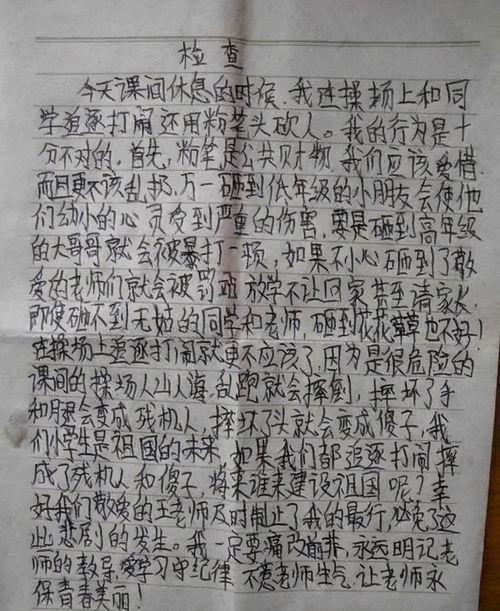 检查
今天课间休息的时候,我在操场上和同
学追逐打闹还用粉笔头砍人。我的行为是十
分不对的,首先,粉笔是公共财物,我们应该爱惜
而且更不该乱扔,万一砸到低年级的小朋友会使他
们幼小的心灵受到严重的伤害,要是砸到高年级
的大哥哥就会被暴打一顿,如果不小心砸到了敬
爱的老师们就会被罚站 放学不让回家甚至请家长
即使砸不到无辜的同学和老师,砸到花花草草也不好!
在操场上追逐打闹就更不应该了,因为是很危险的
课间的操场人山人海,乱跑就会摔倒,摔坏了手
和腿会变成残机人,摔坏了头就会变成傻子,我
们小学生是祖国的未来,如果我们都追逐打闹摔
成了残机人和傻子,将来谁来建设祖国呢?幸
好我们敬爱的王老师及时制止了我的最行,必免了这
些悲剧的发生。我一定要痛改前非,永远明记老
师的教导,爱学习守纪律 不惹老师生气,让老师永
保青春美丽!